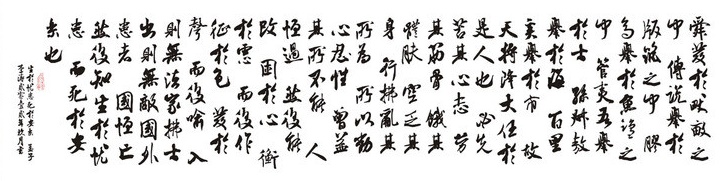 舜發於畎畝之
中 傅說舉於
版築之中 膠
鬲舉於魚鹽之
中 管夷吾舉
於士 孫叔敖
舉於海 百里
奚舉於市 故
天將降大任於
是人也 必先
苦其心志 勞
其筋骨 餓其
體膚 空乏其
身 行拂亂其
所為 所以動
心忍性 曾益
其所不能 人
恒過 然後能
改 困於心 衡
於慮 而後作
徵於色 發於
聲 而後喻 入
則無法家拂士
出則無敵國外
患者 國恒亡
然後知生於憂
患 而死於安
樂也
生於憂患死於安樂 孟子
貳零壹貳年玖月書